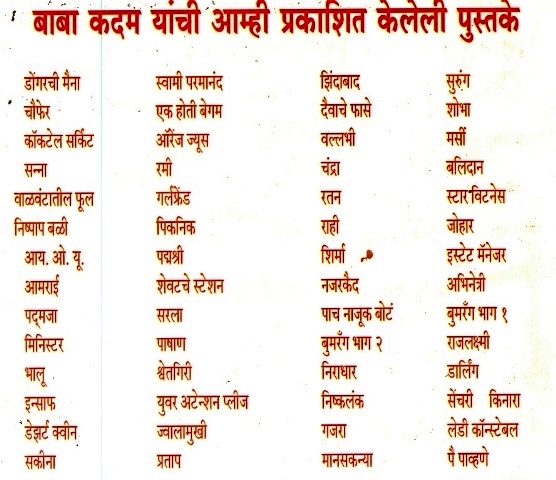 बाबा कदम यांची आम्ही प्रकाशित केलेली पुस्तके
डोंगरची मैना स्वामी परमानंद झिंदाबाद सुरुंग
चौफेर एक होती बेगम दैवाचे फासे शोभा
कॉकटेल सर्किट ऑरेंज ज्यूस वल्लभी मर्सी
सन्ना रमी चंद्रा बलिदान
वाळवंटातील फूल गर्लफ्रेंड रतन स्टार विटनेस
निष्पाप बळी पिकनिक राही जोहार
आय. ओ. यू. पद्मश्री शिर्मा इस्टेट मॅनेजर
आमराई शेवटचे स्टेशन नजरकैद अभिनेत्री
पद्मजा सरला पाच नाजूक बोटं बुमरँग भाग १
मिनिस्टर पाषाण बुमरँग भाग २ राजलक्ष्मी
भालू श्वेतगिरी निराधार डार्लिंग
इन्साफ युवर अटेन्शन प्लीज निष्कलंक सेंचरी किनारा
डेझर्ट क्वीन ज्वालामुखी गजरा लेडी कॉन्स्टेबल
सकीना प्रताप मानसकन्या पै पाव्हणे